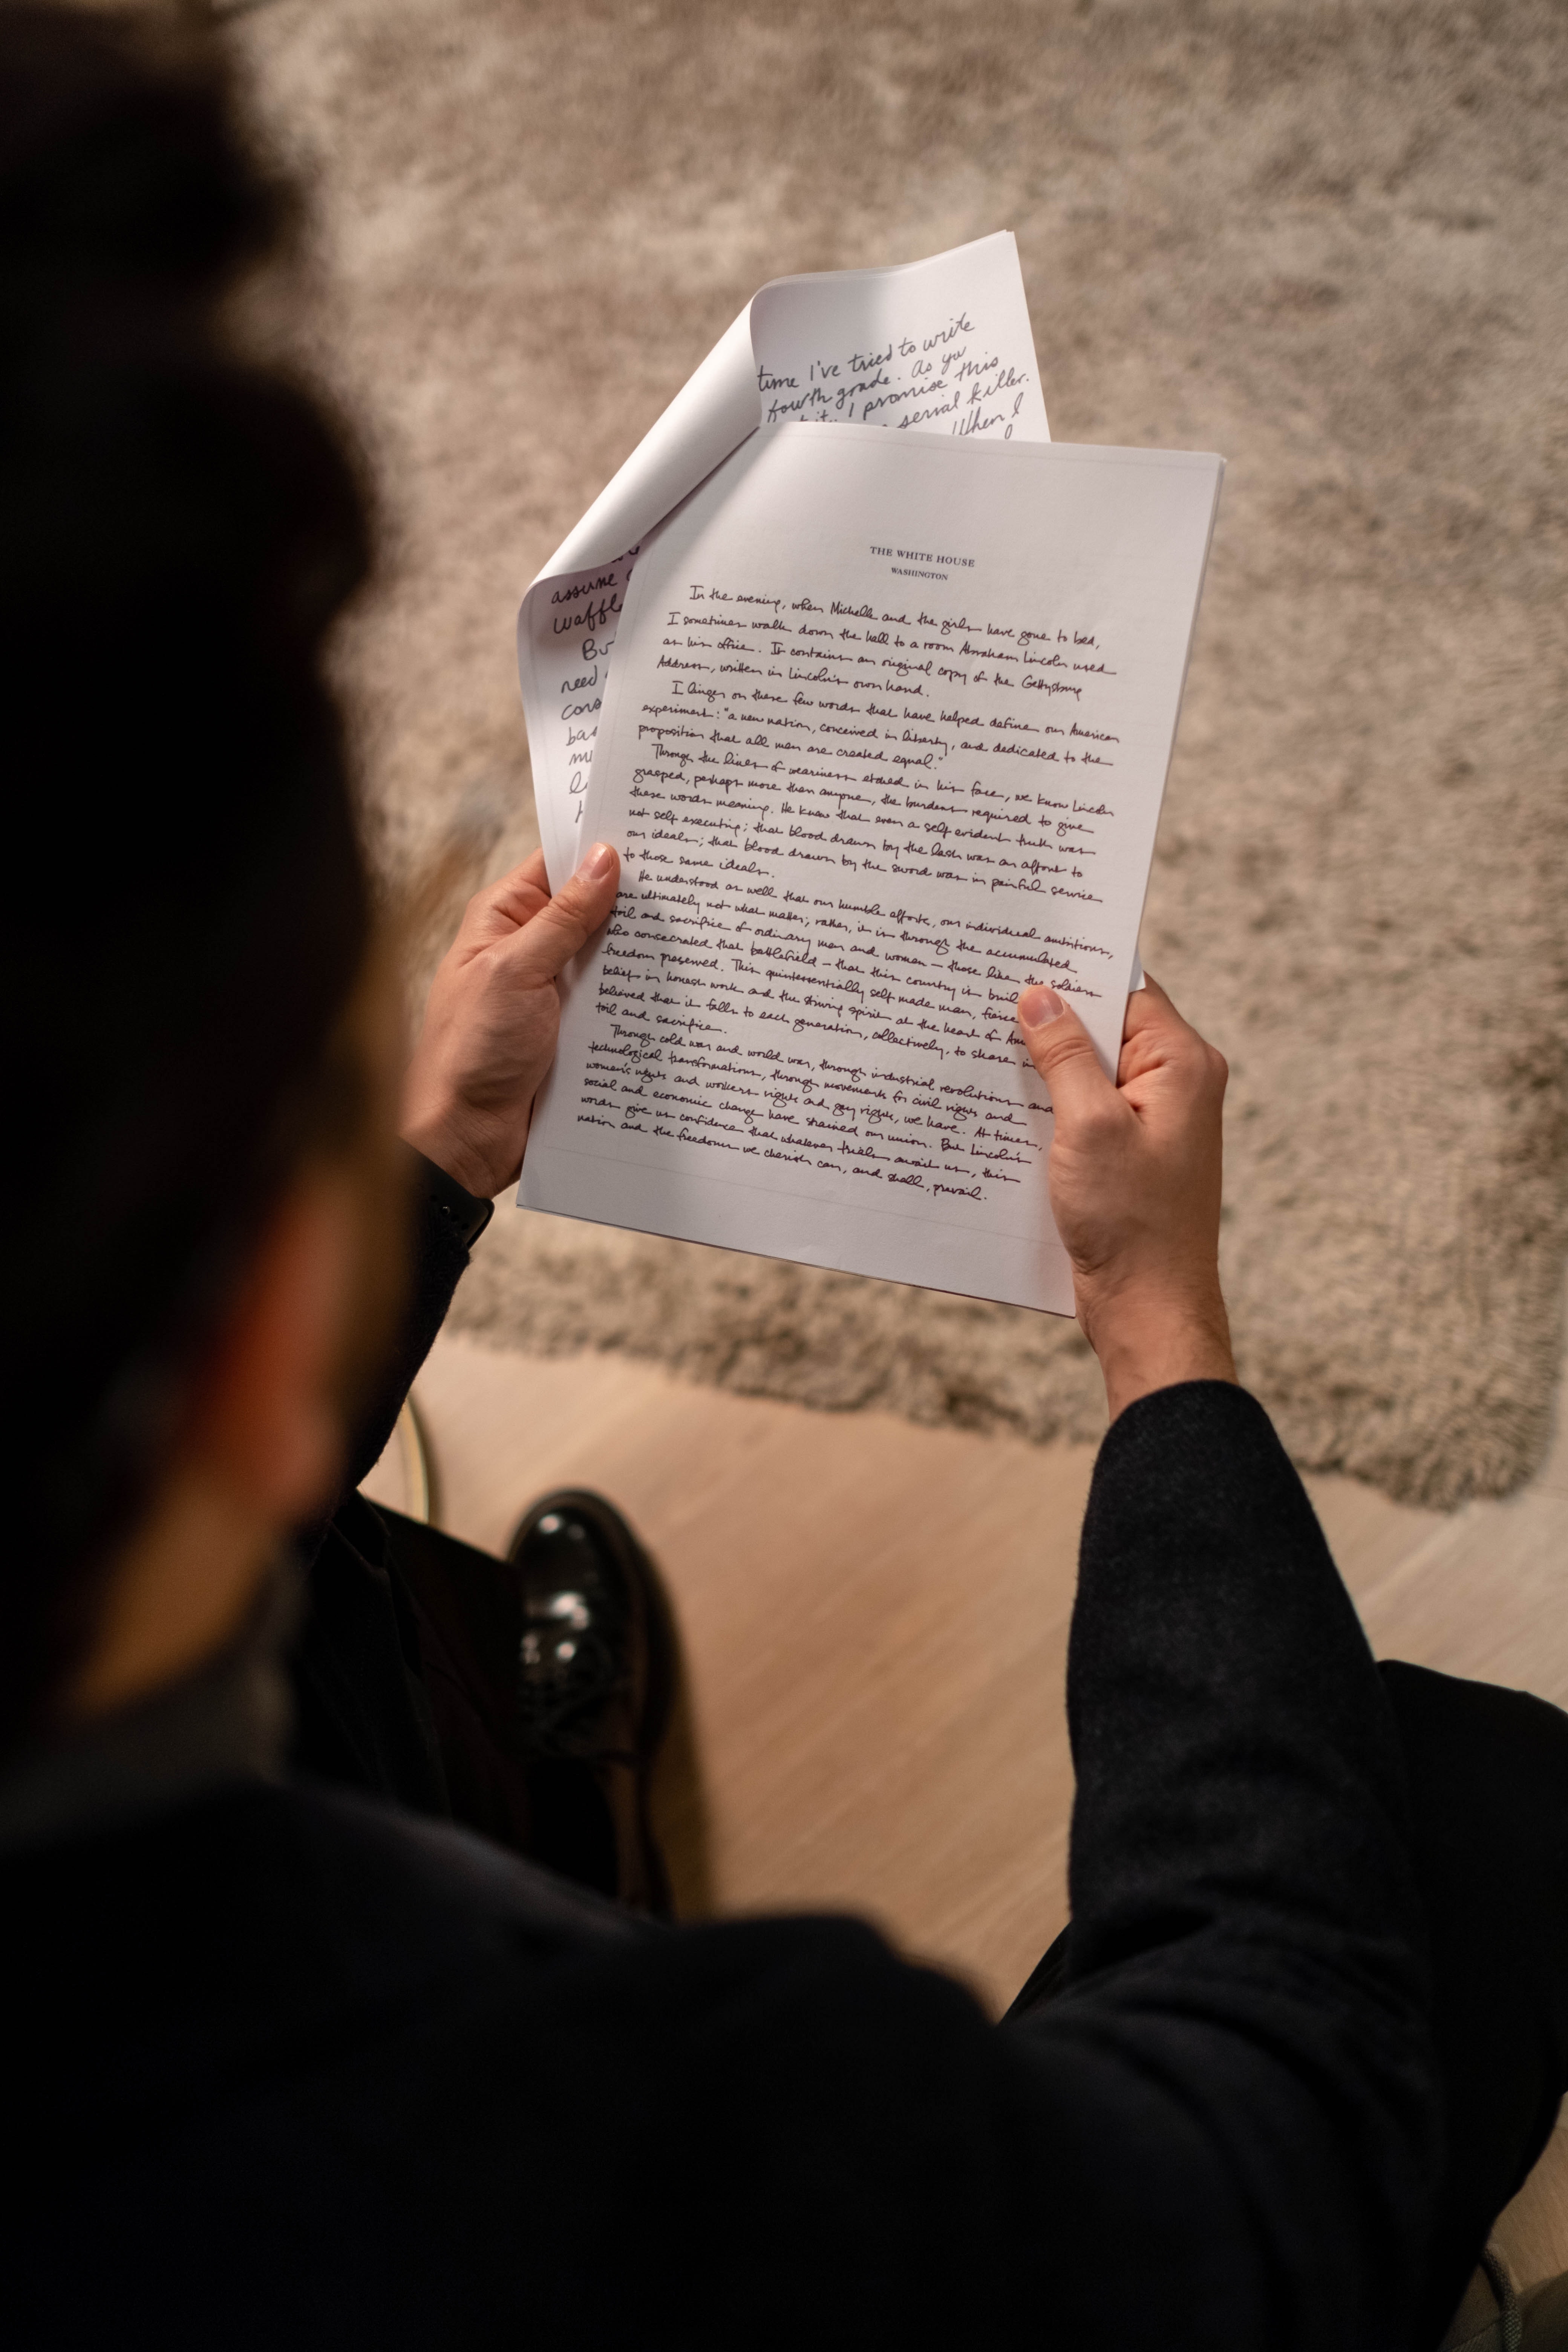 time I've tried to write
fourth grade. As you
I promise this
serial killer.
When I
assume
waffl
Bu
need
cons
ba
THE WHITE HOUSE
WASHINGTON
In the evening, when Michelle and the girls have gone to bed,
I sometimes walk down the hall to a room Abraham Lincoln used
as his office. It contains an original copy of the Gettysburg
Address, written in Lincoln's own hand.
I linger on these few words that have helped define our American
experiment: "a new nation, conceived in liberty, and dedicated to the
proposition that all men are created equal."
Through the lines of weariness etched in his face, we know Lincoln
grasped, perhaps more than anyone, the burdens required to give
these words meaning. He knew that even a self evident truth was
not self executing; that blood drawn by the lash was an affront to
our ideals; that blood drawn by the sword was in painful service
to those same ideals.
He understood as well that our humble efforts, our individual ambitions,
are ultimately not what matter; rather, it is through the accumulated
toil and sacrifice of ordinary men and women – those like the soldiers
who consecrated that battlefield – that this country is buil
freedom preserved. This quintessentially self made man, fierce
belief in honest work and the striving spirit at the heart of Am
believed that it falls to each generation, collectively, to share in
toil and sacrifice.
Through cold war and world war, through industrial revolutions and
technological transformations, through movements for civil rights and
women's rights and workers rights and gay rights, we have. At times,
social and economic change have strained our union. But Lincoln's
words give us confidence that whatever trials await us, this
nation and the freedom we cherish can, and shall, prevail.